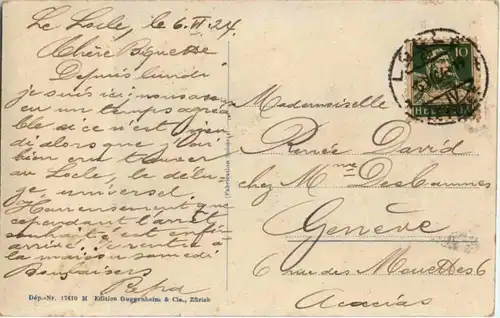 Le Locle, le 6.VI.24.
Chère Biquette
Depuis lundi
je suis ici; nous avons
eu un temps agréa
ble si ce n'est jeu
di alors que j'ai
bien cru trouver
au Locle, le délu-
ge universel
Heureusement que
cependant l'arrêt
souhaité est enfin
arrivé. Je rentre à
la maison samedi
Bons baisers
Mademoiselle
Renée David
chez Mme Descannes
Genève
6 rue des Mouettes 6
Acacias
10
HELVETIA
Dép.-Nr. 17610 M Edition Guggenheim & Cie., Zürich